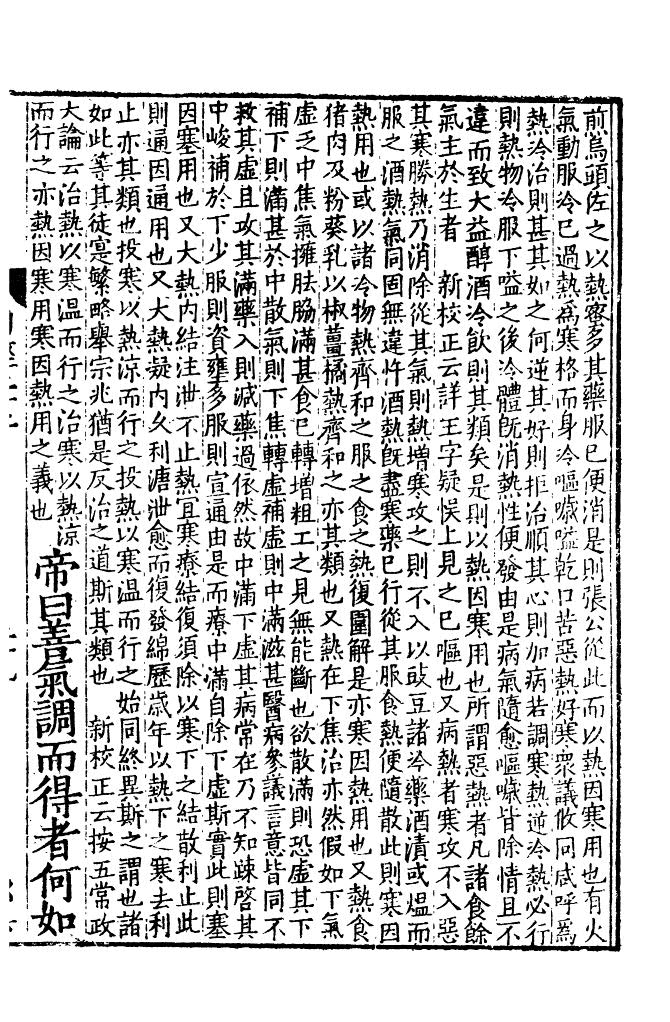 煎烏頭佐之以熱䝉多其藥服已便消是則張公從此而以熱因寒用也有火
氣動服冷已過熱爲寒格而身冷嘔噦嗌乾口苦惡熱好寒衆議攸同咸呼爲
熱冷治則甚其如之何逆其好則拒治順其心則加病若調寒熱逆冷熱必行
則熱物冷服下嗌之後冷體旣消熱性便發由是病氣隨愈嘔噦皆除情且不
違而致大益醇酒冷飲則其類矣是則以熱因寒用也所謂惡熱者凡諸食餘
氣主於生者　新校正云詳王字疑悞上見之已嘔也又病熱者寒攻不入惡
其寒勝熱乃消除從其氣則熱增寒攻之則不入以豉豆諸冷藥酒漬或熅而
服之酒熱氣同固無違忤酒熱旣盡寒藥已行從其服食熱便隨散此則寒因
熱用也或以諸冷物熱齊和之服之食之熱復圍解是亦寒因熱用也又熱食
猪肉及粉葵乳以椒薑橘熱齊和之亦其類也又熱在下焦治亦然假如下氣
虛乏中焦氣擁胠脇滿甚食已轉增粗工之見無能斷也欲散滿則恐虛其下
補下則滿甚於中散氣則下焦轉虛補虛則中滿滋甚醫病參議言意皆同不
救其虛且攻其滿藥入則減藥過依然故中滿下虛其病常在乃不知疎啓其
中峻補於下少服則資壅多服則宣通由是而療中滿自除下虛斯實此則塞
因塞用也又大熱內結注泄不止熱宜寒療結復須除以寒下之結散利止此
則通因通用也又大熱凝內久利溏泄愈而復發綿歷歲年以熱下之寒去利
止亦其類也投寒以熱涼而行之投熱以寒溫而行之始同終異斯之謂也諸
如此等其徒寔繁略舉宗兆猶是反治之道斯其類也　新校正云按五常政
大論云治熱以寒溫而行之治寒以熱涼
而行之亦熱因寒用寒因熱用之義也
帝曰善氣調而得者何如